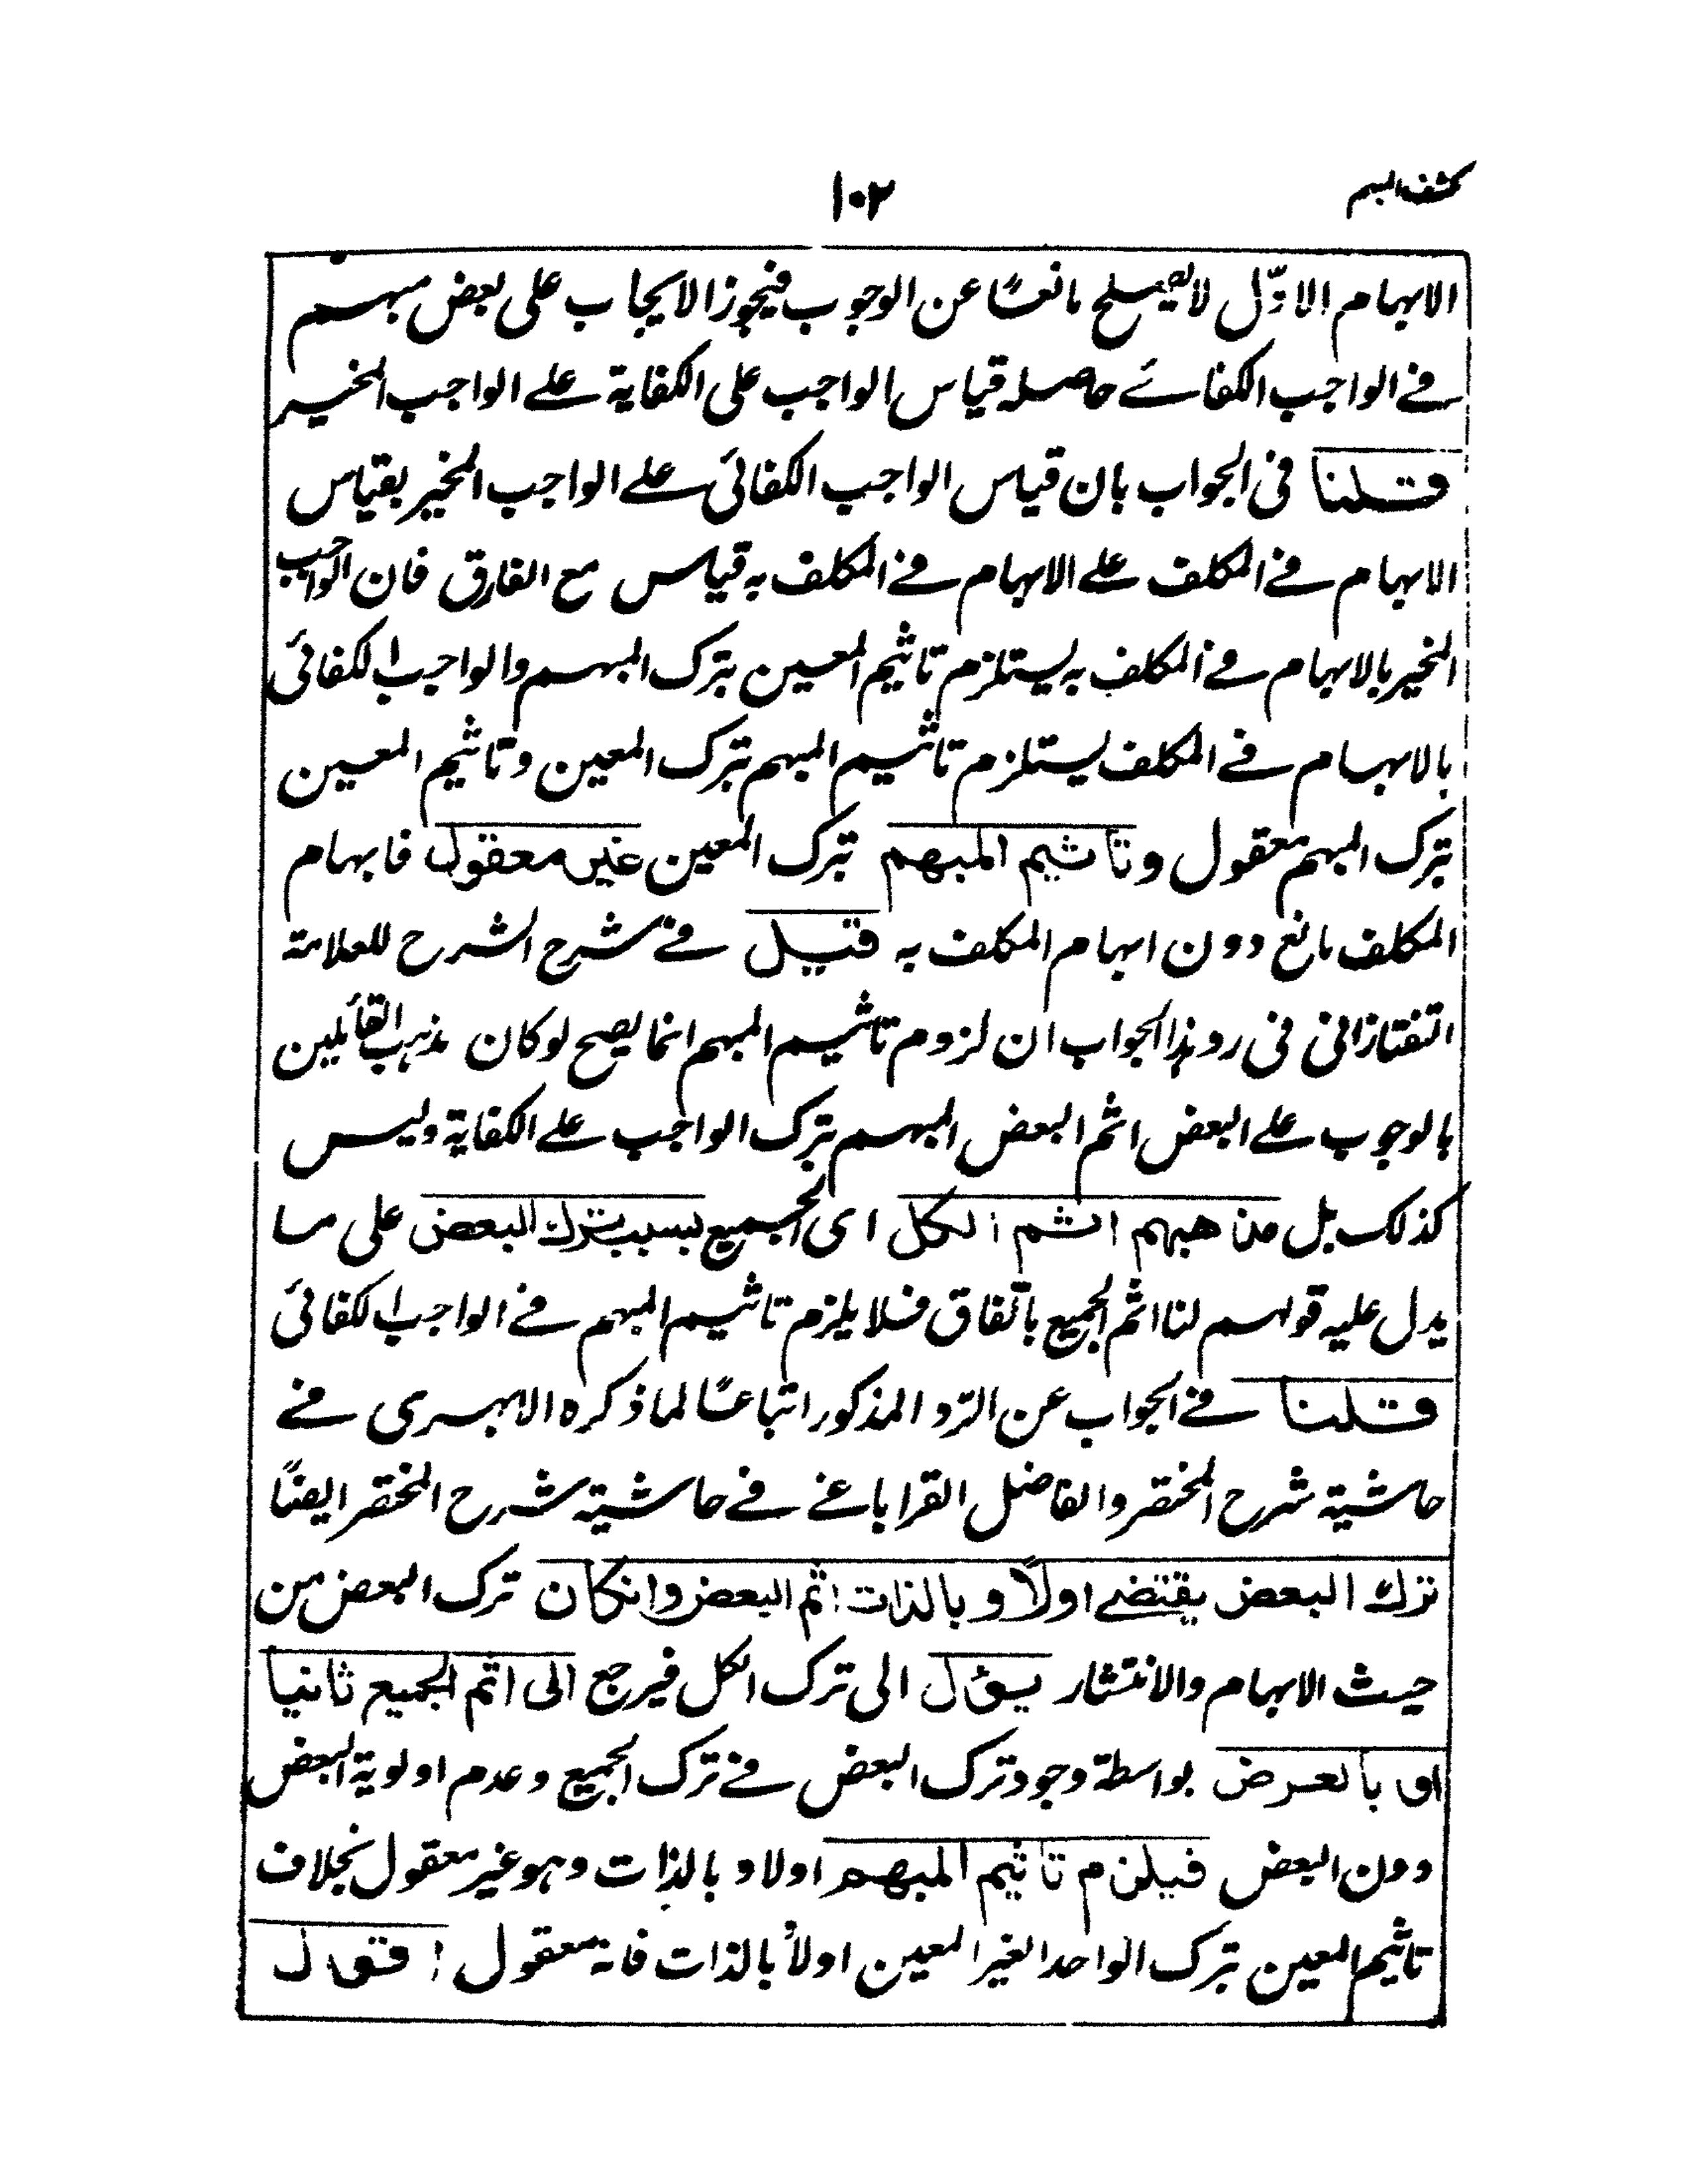 كشف المبهم
١٠٢
الابهام الاوّل لا يصلح مانعًا عن الوجوب فيجوز الايجاب على بعض مبهم
في الواجب الكفائي حاصله قياس الواجب على الكفاية على الواجب المخير
قلنا في الجواب بان قياس الواجب الكفائي على الواجب المخير بقياس
الابهام في المكلف على الابهام في المكلف به قياس مع الفارق فان الواجب
المخير بالابهام في المكلف به يستلزم تاثيم المعين بترك المبهم والواجب الكفائي
بالابهام في المكلف يستلزم تاثيم المبهم بترك المعين وتاثيم المعين
بترك المبهم معقول وتاثيم المبهم بترك المعين غير معقول فابهام
المكلف مانع دون ابهام المكلف به قيل في شرح الشرح للعلامة
التفتازاني في رد هذا الجواب ان لزوم تاثيم المبهم انما يصح لو كان مذهب القائلين
بالوجوب على البعض اثم البعض المبهم بترك الواجب على الكفاية وليس
كذلك بل مذهبهم اثم الكل اى الجميع بسبب ترك البعض على ما
يدل عليه قولهم لنا اثم الجميع باتفاق فلا يلزم تاثيم المبهم في الواجب الكفائي
قلنا في الجواب عن الرّد المذكور اتباعًا لما ذكره الابهرى في
حاشية شرح المختصر والفاضل القراباغي في حاشية شرح المختصر ايضًا
ترك البعض يقتضي اولًا و بالذات اثم البعض وانكان ترك البعض من
حيث الابهام والانتشار يؤل الى ترك الكل فيرجع الى اثم الجميع ثانيا
او بالعرض بواسطة وجود ترك البعض في ترك الجميع وعدم اولوية البعض
دون البعض فيلزم تاثيم المبهم اولا و بالذات وهو غير معقول بخلاف
تاثيم المعين بترك الواحد الغير المعين اولاً بالذات فانه معقول اقول